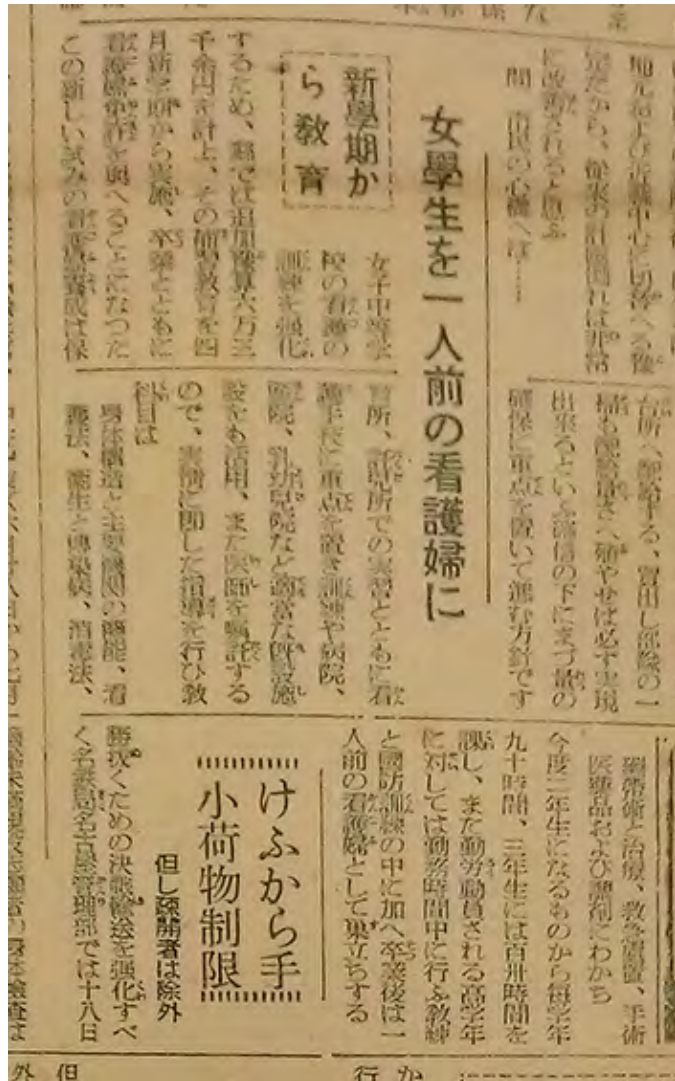 地元および近縣中心に切替へる豫
定だから、従来の計画図れは非常
に改善されると思ふ
問 市民の心構へは……
台所へ配給する、買出し部隊の一
掃も配給量さへ殖やせば必ず実現
出来るといふ確信の下にまづ量の
確保に重点を置いて進む方針です
女學生を一人前の看護婦に
新學期か
ら教育
女子中等学
校の看護の
訓練を強化
するため、縣では追加豫算六万三
千余円を計上、その補習教育を四
月新学期から実施、卒業とともに
看護婦免許を與へることになつた
この新しい試みの看護婦養成は保
育所、託児所での実習とともに看
護手技に重点を置き訓練や病院、
医院、乳幼児院など適当な既設施
設をも活用、また医師を嘱託する
ので、実情に即した指導を行ひ教
科目は
身体構造と主要機関の機能、看
護法、衛生と傳染病、消毒法、
繃帯術と治療、救急処置、手術
医薬品および調剤にわかち
今度二年生になるものから毎学年
九十時間、三年生には百卅時間を
課し、また勤労動員される高学年
に対しては勤務時間中に行ふ教練
と國防訓練の中に加へ卒業後は一
人前の看護婦として巣立ちする
けふから手
小荷物制限
但し疎開者は除外
勝抜くための決戦輸送を強化すべ
く名鉄局名古屋管理部では十八日